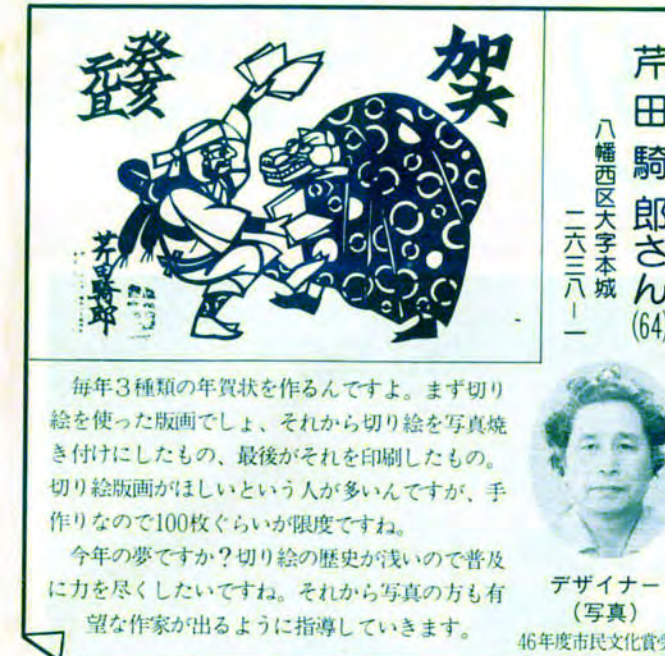 芹田騎郎さん(64)
八幡西区大字本城
二六三八ー一
賀
癸亥
元旦
芹田騎郎
毎年3種類の年賀状を作るんですよ。まず切り
絵を使った版画でしょ、それから切り絵を写真焼
き付けにしたもの、最後がそれを印刷したもの。
切り絵版画がほしいという人が多いんですが、手
作りなので100枚ぐらいが限度ですね。
今年の夢ですか？切り絵の歴史が浅いので普及
に力を尽くしたいですね。それから写真の方も有
望な作家が出るように指導していきます。
デザイナー
（写真）
46年度市民文化賞受